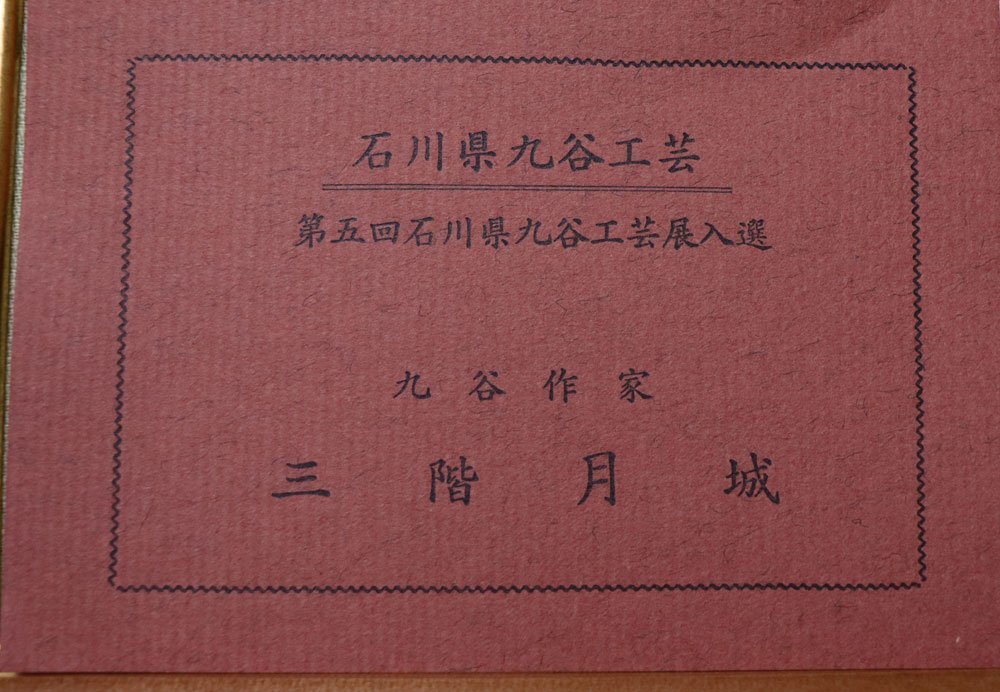 石川県九谷工芸
第五回石川県九谷工芸展入選
九谷作家
三階月城